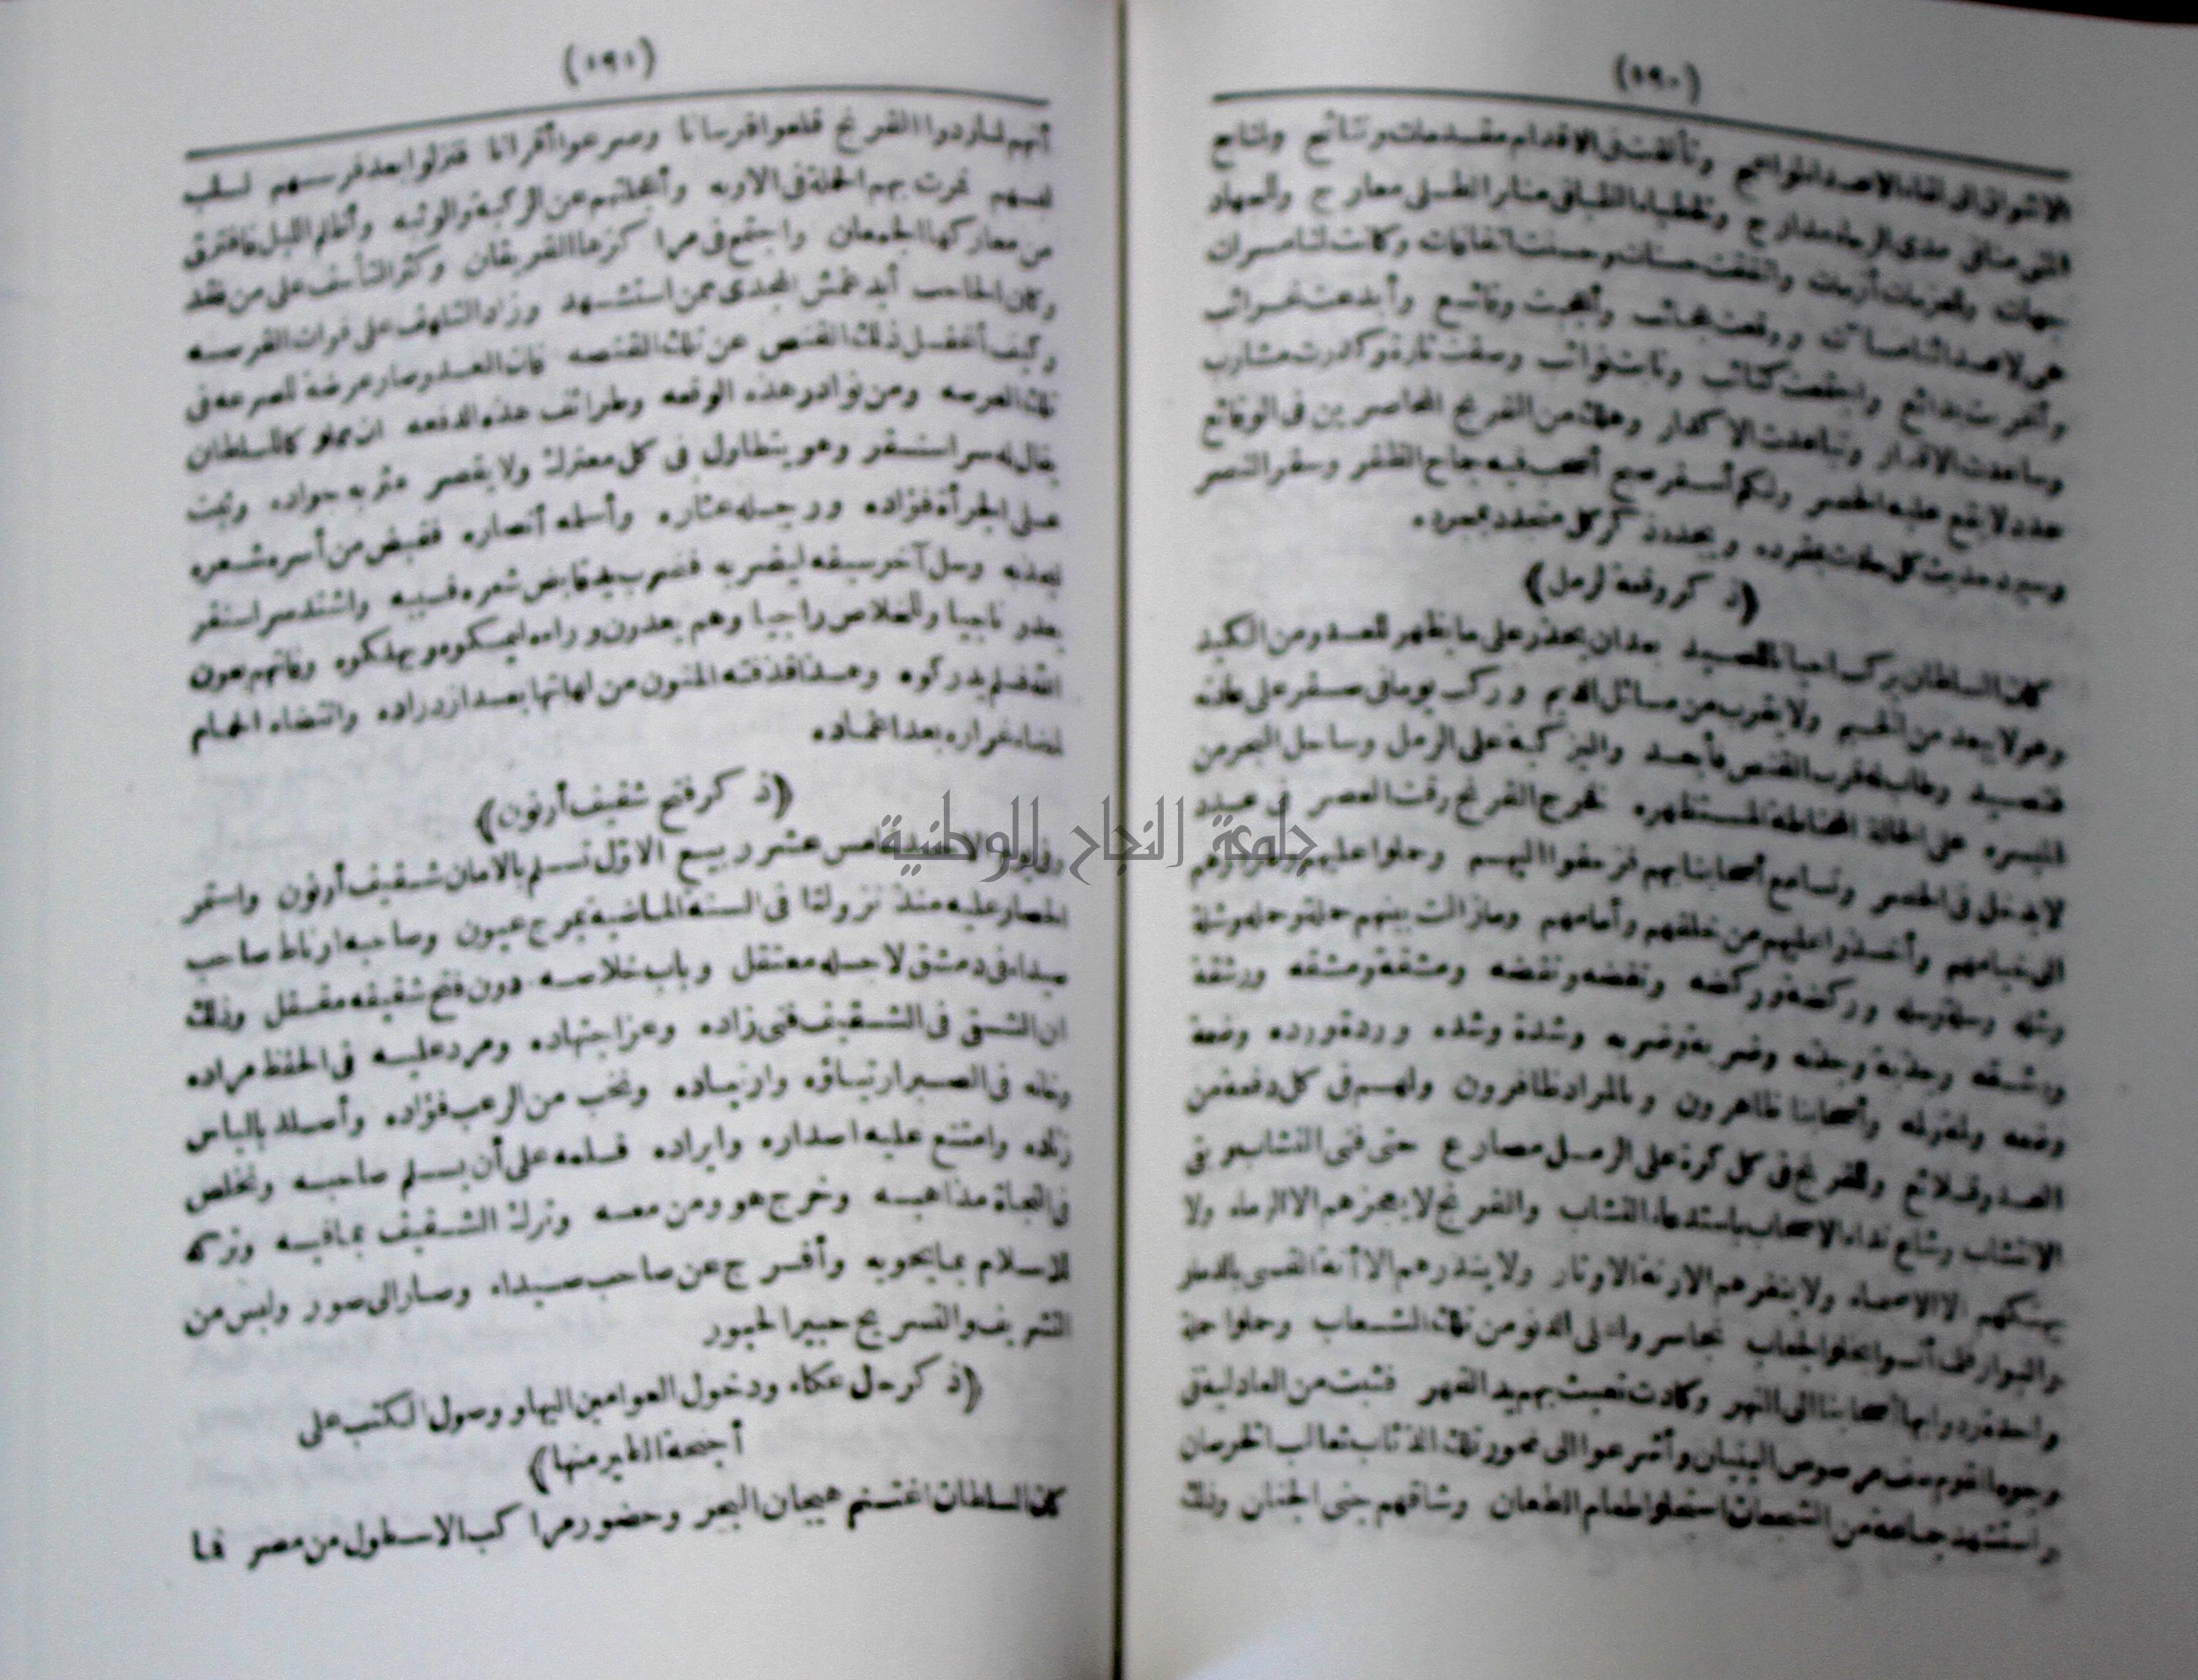 (١٩٠)
الاشواق الى لقاء الاعداء لواعج وتألفت فى الاقدام مقدمات ونتائج
التقى مدى الرشد مدارج وللخطباء الظبا فى منابر الطلى معارج
جهات وللعزمات أزمات واتفقت حسنات وحسنت اتفاقات وكانت لنا مسرات
هى لاعدائنا مسا آت ووقعت عجائب وأعجبت وقائع وأبدعت غرائب
وأغربت بدائع واجتمعت كتائب ونابت نوائب وصفت تارة وكدرت مشارب
وساعدت الاقدار وتباعدت الاكدار وهلك من الفرنج المحاصرين فى الوقائع
عدد لا يقع عليه الحصر ولكم أسفر صبح أصحب فيه جماح الظفر وسفر النصر
وسيرد حديث كل حادث بمفرده ويجدد ذكر كل متجدد بمجرده
(ذكر وقعة الرمل)
كان السلطان يركب احيانا للصيد بعد ان يحذر على ما يظهر للعدو من الكيد
وهو لا يبعد من الخيم ولا يقرب من مسائل الديم وركب يوما فى صفر على عادته
فتصيد وطاب له قرب القنص فأبعد واليزكية على الرمل وساحل البحر من
الميسره على الحالة المحتاطة المستظهره فخرج الفرنج وقت العصر فى عدد
لا يدخل فى الحصر وتسامع أصحابنا بهم فزحفوا اليهم وحملوا عليهم وطردوهم
الى خيامهم وأخذوا عليهم من خلفهم وأمامهم ومازالت بينهم حملة وحمله وشلة
وشله وسلة وسله وركضة وركضه ونفضه ومشقة ومشقه ورشقة
ورشقه وجذبة وجذبه وضربة وضربه وشدة وشده وردة ورده وضعة
وأصحابنا ظاهرون وبالمراد ظافرون ولهم فى كل دفعة من
العدو قلائع وللفرنج فى كل كرة على الرمل مصارع حتى فنى النشاب وبقى
الانتشاب وشاع نداء الاصحاب باستدعاء النشاب والفرنج لا يعجزهم الا الرماه ولا
يهتكهم الا الاصماء ولا ينفرهم الا رنة الاوتار ولا ينذرهم الا أنة القسى بالدمار
والبوار فلما أحسوا بخلو الجعاب تجاسروا على الدنو من تلك الشعاب وحملوا حملة
واحدة ردوا بها أصحابنا الى النهر وكادت تعبث بهم يد القهر فثبت من العادلية فى
وجوه القوم صف مرصوص البنيان وأشرعوا الى نحور تلك الذئاب ثعالب الخرصان
واستشهد جماعة من الشجعان استحلوا طعام الطعان وشاقهم جنى الجنان وذلك
(١٩١)
أنهم لما ردوا الفرنج قلعوا فرسانا وصرعوا أقرانا فنزلوا بعد فرسهم لسلب
لبسهم فمرت بهم الحملة فى الاوبه وأعجلتهم عن الركبة والوثبه وأظلم الليل فافترق
من معاركها الجمعان واجتمع فى مراكزها الفريقان وكثر التأسف على من فقد
وكان الحاجب أيدغمش المجدى ممن استشهد وزاد التلهف على فوات الفرسه
وكيف أغفل ذلك القنص عن تلك القنصه فات العدو صار عرضة للصرعه فى
تلك العرصه ومن نوادر هذه الوقعه وطرائف هذه الدفعه ان مملوكا للسلطان
يقال له سراسنقر وهو يتطاول فى كل معترك ولا يقصر عثر به جواده وثبت
على الجرأة فؤاده ورجله عثاره وأسلمه أنصاره فقبض من أسره شعره
ليجذبه وسل آخر سيفه ليضربه فضرب يد قابض شعره فسيبه واشتد سراسنقر
يعدو ناجيا وللخلاص راجيا وهم يعدون وراءه ليمسكوه ويهلكوه وفاتهم بعون
الله فلم يدركوه وهذا قذفته المنون من لهاتها بعد ازدراده وانتضاه الحمام
لمضاء غراره بعد اغماده
(ذكر فتح شقيف أرنون)
وفى يوم الاحد خامس عشر ربيع الاول تسلم بالامان شقيف أرنون واستمر
الحصار عليه منذ نزولنا فى السنة الماضية بمرج عيون وصاحبه ارناط صاحب
صيدا فى دمشق لاجله معتقل وباب خلاصه دون فتح شقيفه مقفل وذلك
ان الشقى فى الشقيف فنى زاده وعز اجتهاده ومرد عليه فى الحفظ مراده
وخانه فى الصبر ارتياؤه وارتياده ونخب من الرعب فؤاده وأصلد بالياس
زناده وامتنع عليه اصداره وايراده فسلمه على أن يسلم صاحبه وتخلص
فى النجاة مذاهبه وخرج هو ومن معه وترك الشقيف بما فيه وتركه
للاسلام بما يحويه وأفرج عن صاحب صيداء وصار الى صور ولبس من
التشريف والتسريح حبير الحبور
(ذكر حال عكاء ودخول العوامين اليها ووصول الكتب على
أجنحة الطير منها)
كان السلطان اغتنم هيجان البحر وحضور مراكب الاسطول من مصر فما
جامعة النجاح الوطنية